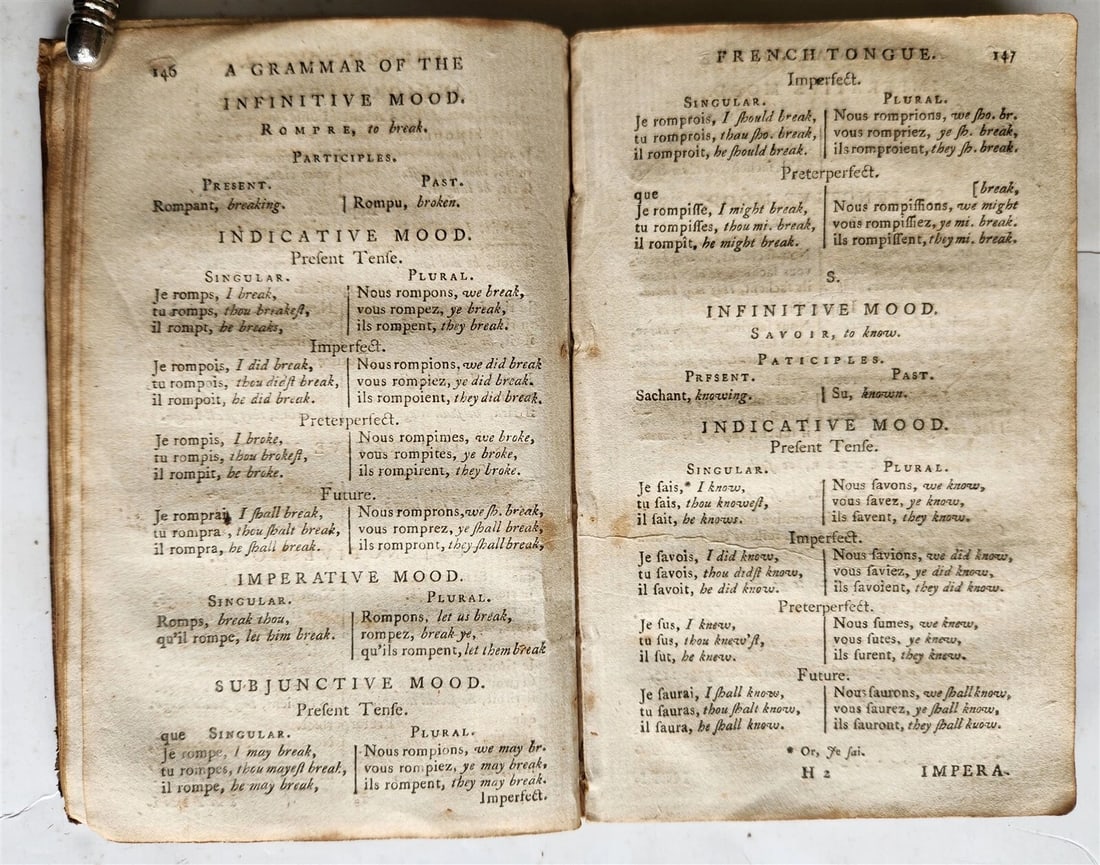 146 A GRAMMAR OF THE
INFINITIVE MOOD.
ROMPRE, to break.
PARTICIPLES.
PRESENT. PAST.
Rompant, breaking. | Rompu, broken.
INDICATIVE MOOD.
Preſent Tenſe.
SINGULAR. PLURAL.
Je romps, I break, Nous rompons, we break,
tu romps, thou breakeſt, vous rompez, ye break,
il rompt, he breaks, ils rompent, they break.
Imperfect.
Je rompois, I did break, Nous rompions, we did break
tu rompois, thou didſt break, vous rompiez, ye did break.
il rompoit, he did break. ils rompoient, they did break.
Preterperfect.
Je rompis, I broke, Nous rompimes, we broke,
tu rompis, thou brokeſt, vous rompites, ye broke,
il rompit, he broke. ils rompirent, they broke.
Future.
Je romprai, I ſhall break, Nous romprons, we ſh. break,
tu rompra, thou ſhalt break, vous romprez, ye ſhall break,
il rompra, he ſhall break. ils rompront, they ſhall break,
IMPERATIVE MOOD.
SINGULAR. PLURAL.
Romps, break thou, Rompons, let us break,
qu'il rompe, let him break. rompez, break ye,
qu'ils rompent, let them break
SUBJUNCTIVE MOOD.
Preſent Tenſe.
que SINGULAR. PLURAL.
Je rompe, I may break, Nous rompions, we may br.
tu rompes, thou mayeſt break, vous rompiez, ye may break,
il rompe, he may break, ils rompent, they may break.
Imperfect.
FRENCH TONGUE. 147
Imperfect.
SINGULAR. PLURAL.
Je romprois, I ſhould break, Nous romprions, we ſho. br.
tu romprois, thau ſho. break, vous rompriez, ye ſh. break,
il romproit, he ſhould break. ils romproient, they ſh. break.
Preterperfect.
que [break,
Je rompiſſe, I might break, Nous rompiſſions, we might
tu rompiſſes, thou mi. break, vous rompiſſiez, ye mi. break.
il rompit, he might break. ils rompiſſent, they mi. break.
S.
INFINITIVE MOOD.
SAVOIR, to know.
PATICIPLES.
PRFSENT. PAST.
Sachant, knowing. | Su, known.
INDICATIVE MOOD.
Preſent Tenſe.
SINGULAR. PLURAL.
Je ſais,* I know, Nous ſavons, we know,
tu ſais, thou knoweſt, vous ſavez, ye know,
il ſait, he knows. ils ſavent, they know.
Imperfect.
Je ſavois, I did know, Nous ſavions, we did know,
tu ſavois, thou didſt know, vous ſaviez, ye did know,
il ſavoit, he did know. ils ſavoient, they did know.
Preterperfect.
Je ſus, I knew, Nous ſumes, we knew,
tu ſus, thou knew'ſt, vous ſutes, ye knew,
il ſut, he knew. ils ſurent, they knew.
Future.
Je ſaurai, I ſhall know, Nous ſaurons, we ſhall know,
tu ſauras, thou ſhalt know, vous ſaurez, ye ſhall know,
il ſaura, he ſhall know. ils ſauront, they ſhall kuow.
* Or, Je ſai.
H 2 IMPERA-